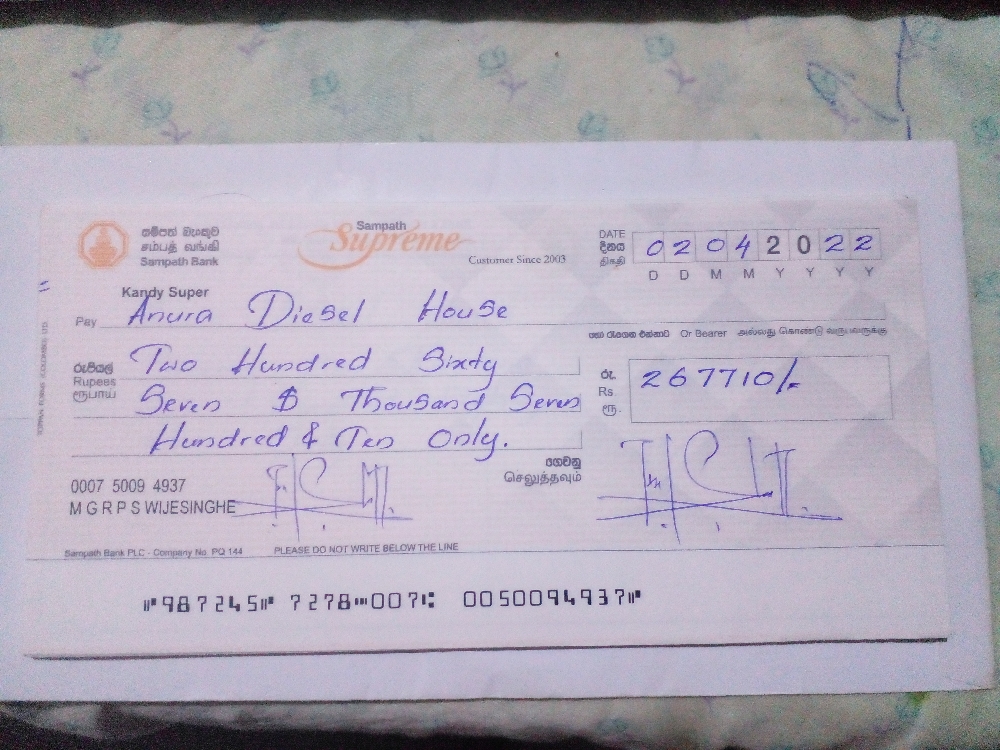 සම්පත් බැංකුව
சம்பத் வங்கி
Sampath Bank
Sampath
Supreme
Customer Since 2003
DATE
දිනය
திகதி
0 2 0 4 2 0 2 2
D D M M Y Y Y Y
Kandy Super
Pay Anura Diesel House
හෝ රැගෙන එන්නාට Or Bearer அல்லது கொண்டு வருபவருக்கு
රුපියල්
Rupees
ரூபாய்
Two Hundred Sixty
Seven $ Thousand Seven
Hundred & Ten Only.
රු.
Rs.
ரூ.
267710/-
ගෙවනු
செலுத்தவும்
0007 5009 4937
M G R P S WIJESINGHE
Sampath Bank PLC - Company No. PQ 144 PLEASE DO NOT WRITE BELOW THE LINE
⑈987245⑈ 7278⑉007⑆ 0050094937⑈